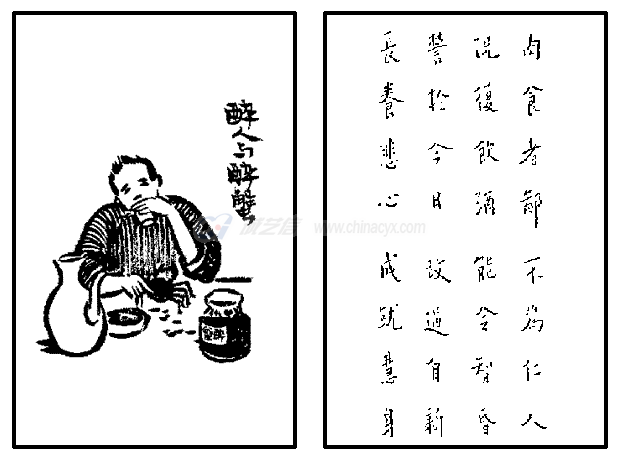 醉人与醉蟹
肉食者鄙 不為仁人
況復飲酒 能令智昏
誓於今日 改過自新
長養悲心 成就慧身
www.chinacyx.com